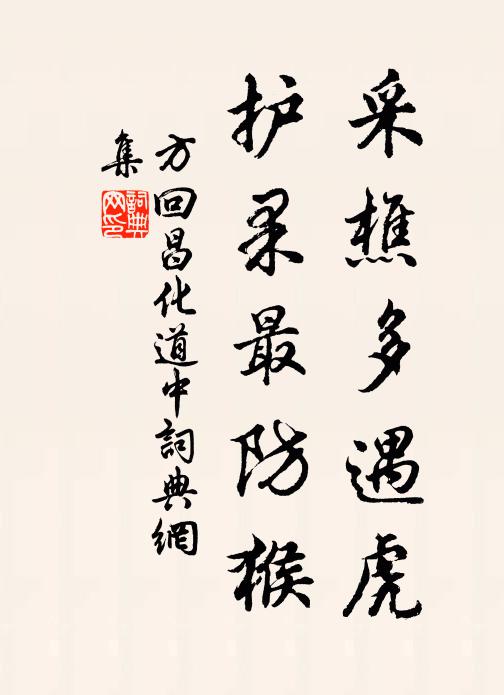 采樵多遇虎
护果最防猴
方回昌化道中詞典網
集
詞典
网印